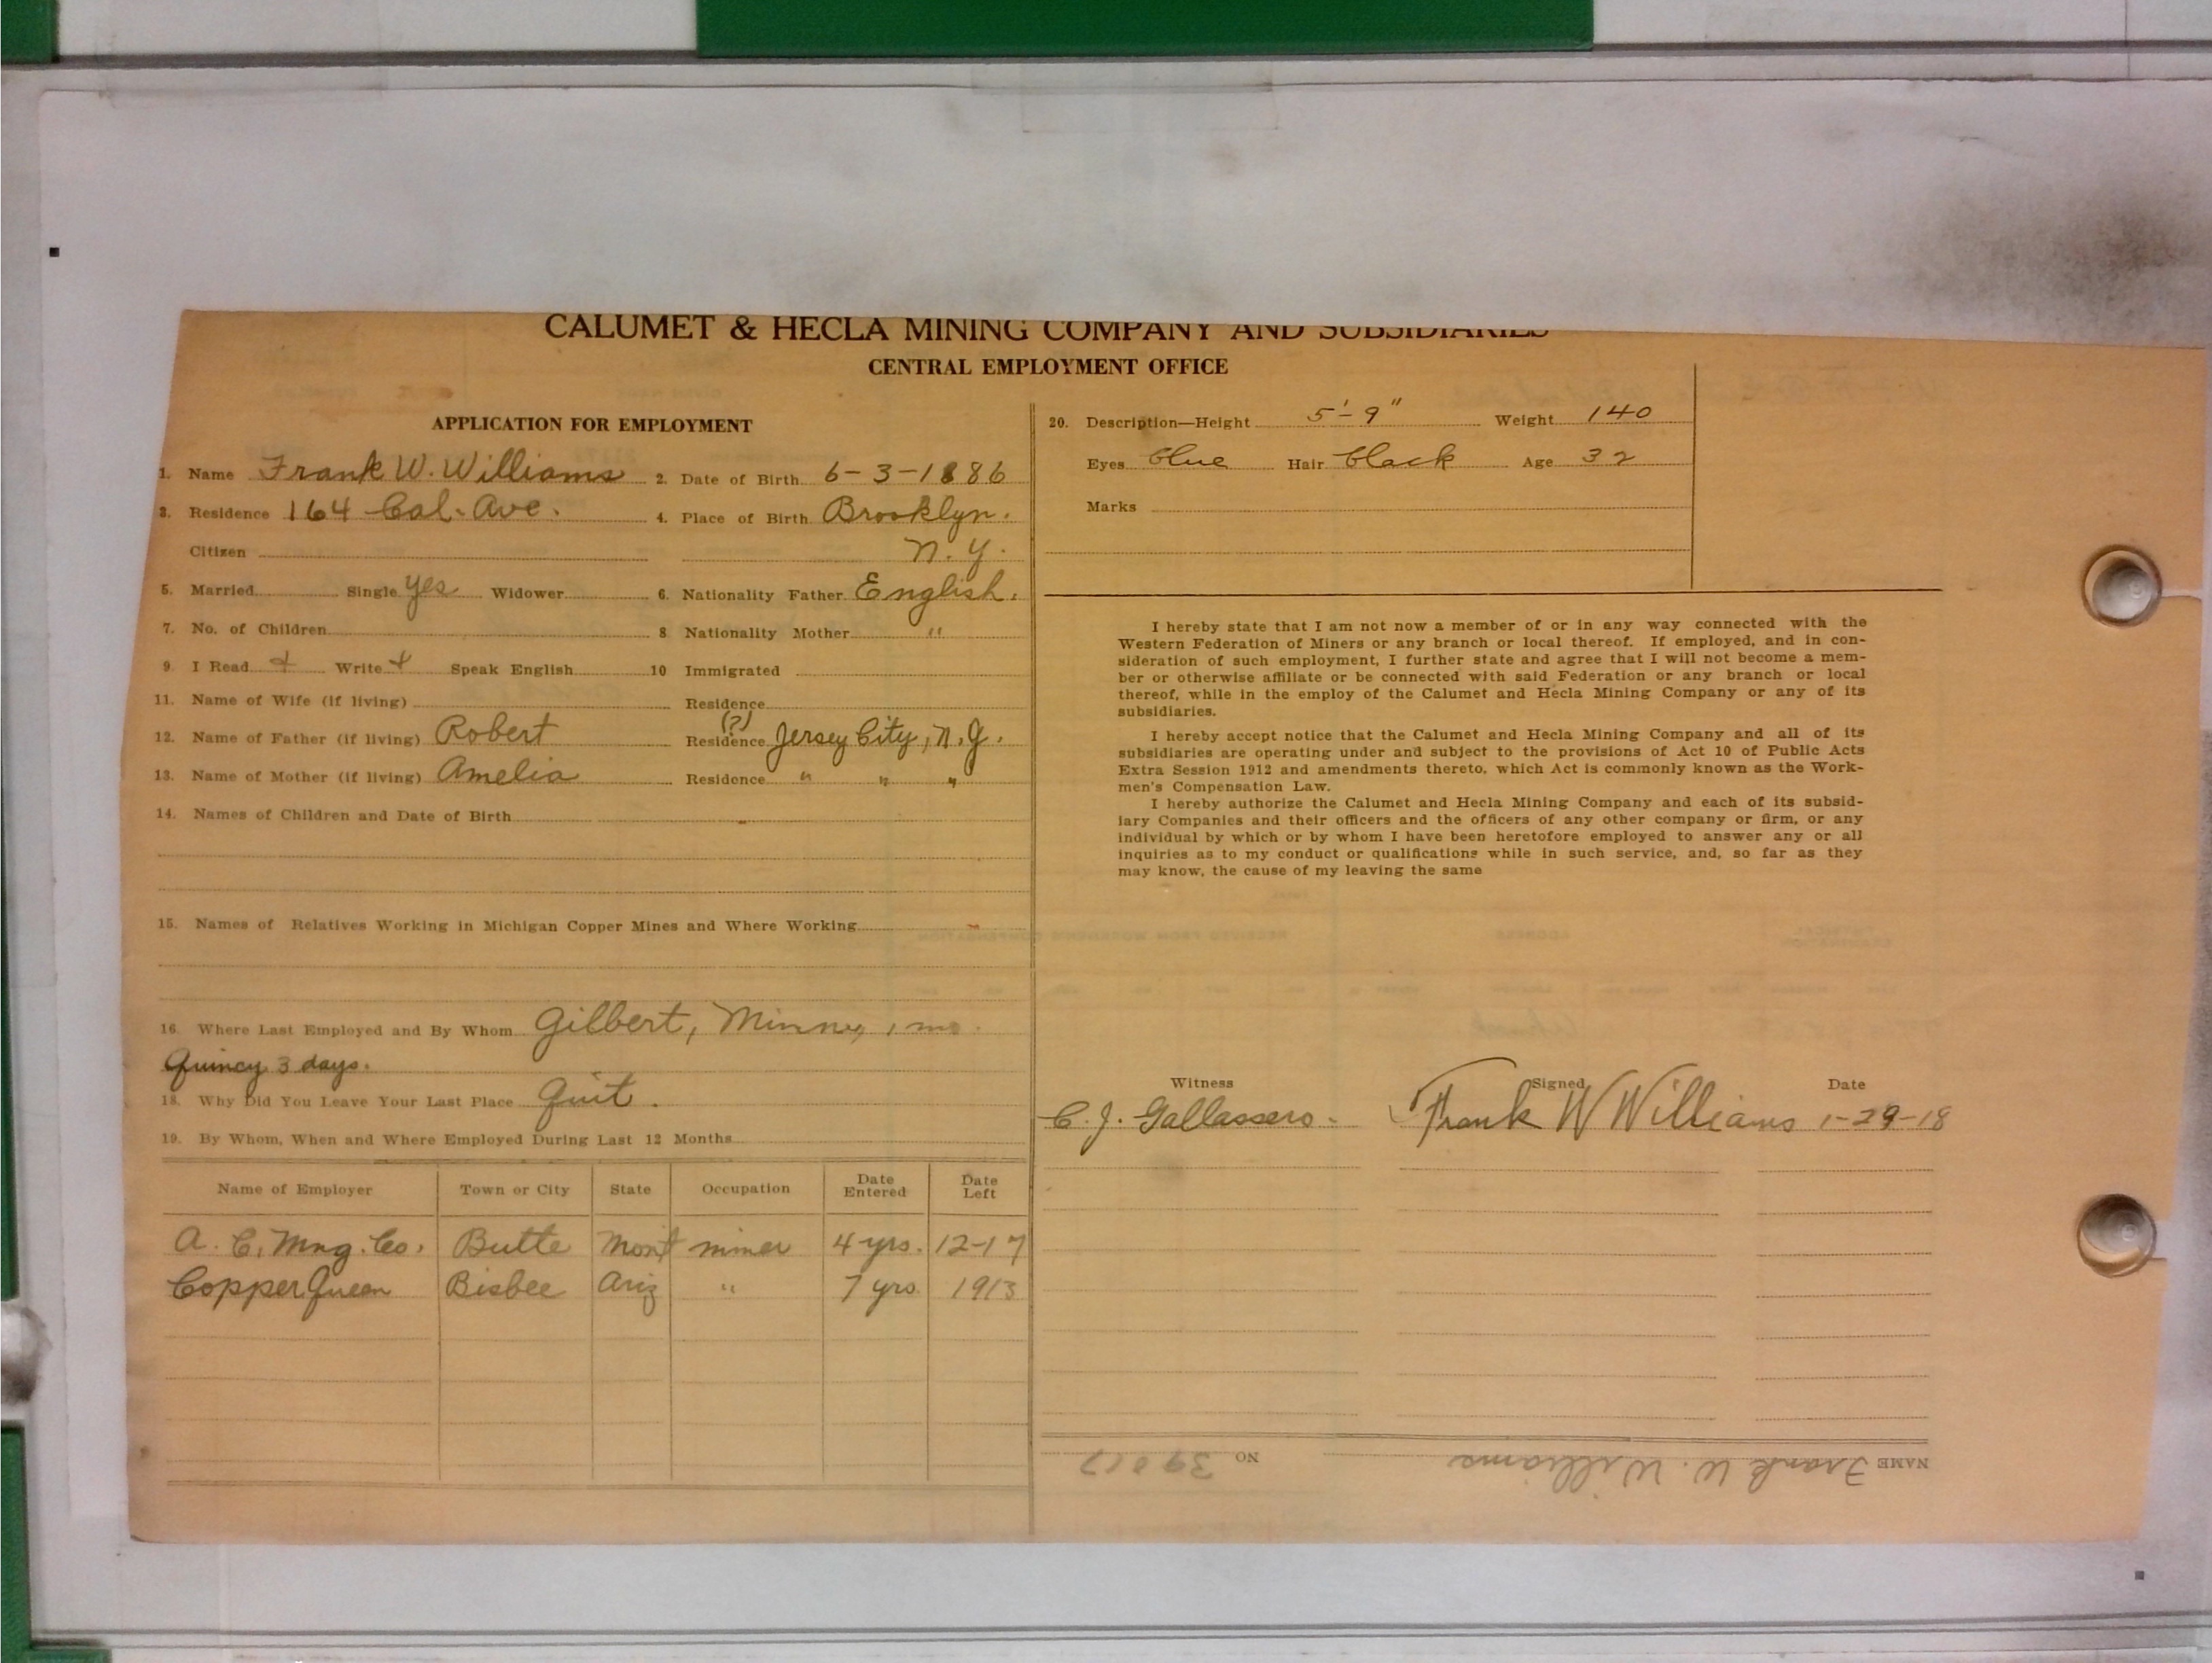 CALUMET & HECLA MINING COMPANY AND SUBSIDIARIES
CENTRAL EMPLOYMENT OFFICE
APPLICATION FOR EMPLOYMENT
1. Name Frank W. Williams 2. Date of Birth 6-3-1886
3. Residence 164 Cal. Ave. 4. Place of Birth Brooklyn.
Citizen N. Y.
5. Married Single yes Widower 6. Nationality Father English.
7. No. of Children 8 Nationality Mother "
9. I Read + Write + Speak English 10 Immigrated
11. Name of Wife (if living) Residence
(?)
12. Name of Father (if living) Robert Residence Jersey City, N. J.
13. Name of Mother (if living) Amelia Residence " " "
14. Names of Children and Date of Birth
15. Names of Relatives Working in Michigan Copper Mines and Where Working
16. Where Last Employed and By Whom Gilbert, Minn, 1 mo.
Quincy 3 days.
18. Why Did You Leave Your Last Place Quit.
19. By Whom, When and Where Employed During Last 12 Months
Name of Employer Town or City State Occupation Date Entered Date Left
A. C. Mng. Co. Butte Mont miner 4 yrs. 12-17
Copper Queen Bisbee Ariz " 7 yrs. 1913
20. Description—Height 5'-9" Weight 140
Eyes blue Hair black Age 32
Marks
I hereby state that I am not now a member of or in any way connected with the
Western Federation of Miners or any branch or local thereof. If employed, and in con-
sideration of such employment, I further state and agree that I will not become a mem-
ber or otherwise affiliate or be connected with said Federation or any branch or local
thereof, while in the employ of the Calumet and Hecla Mining Company or any of its
subsidiaries.
I hereby accept notice that the Calumet and Hecla Mining Company and all of its
subsidiaries are operating under and subject to the provisions of Act 10 of Public Acts
Extra Session 1912 and amendments thereto, which Act is commonly known as the Work-
men's Compensation Law.
I hereby authorize the Calumet and Hecla Mining Company and each of its subsid-
iary Companies and their officers and the officers of any other company or firm, or any
individual by which or by whom I have been heretofore employed to answer any or all
inquiries as to my conduct or qualifications while in such service, and, so far as they
may know, the cause of my leaving the same
Witness Signed Date
C. J. Gallassero. Frank W Williams 1-29-18
NAME Frank W. Williams NO